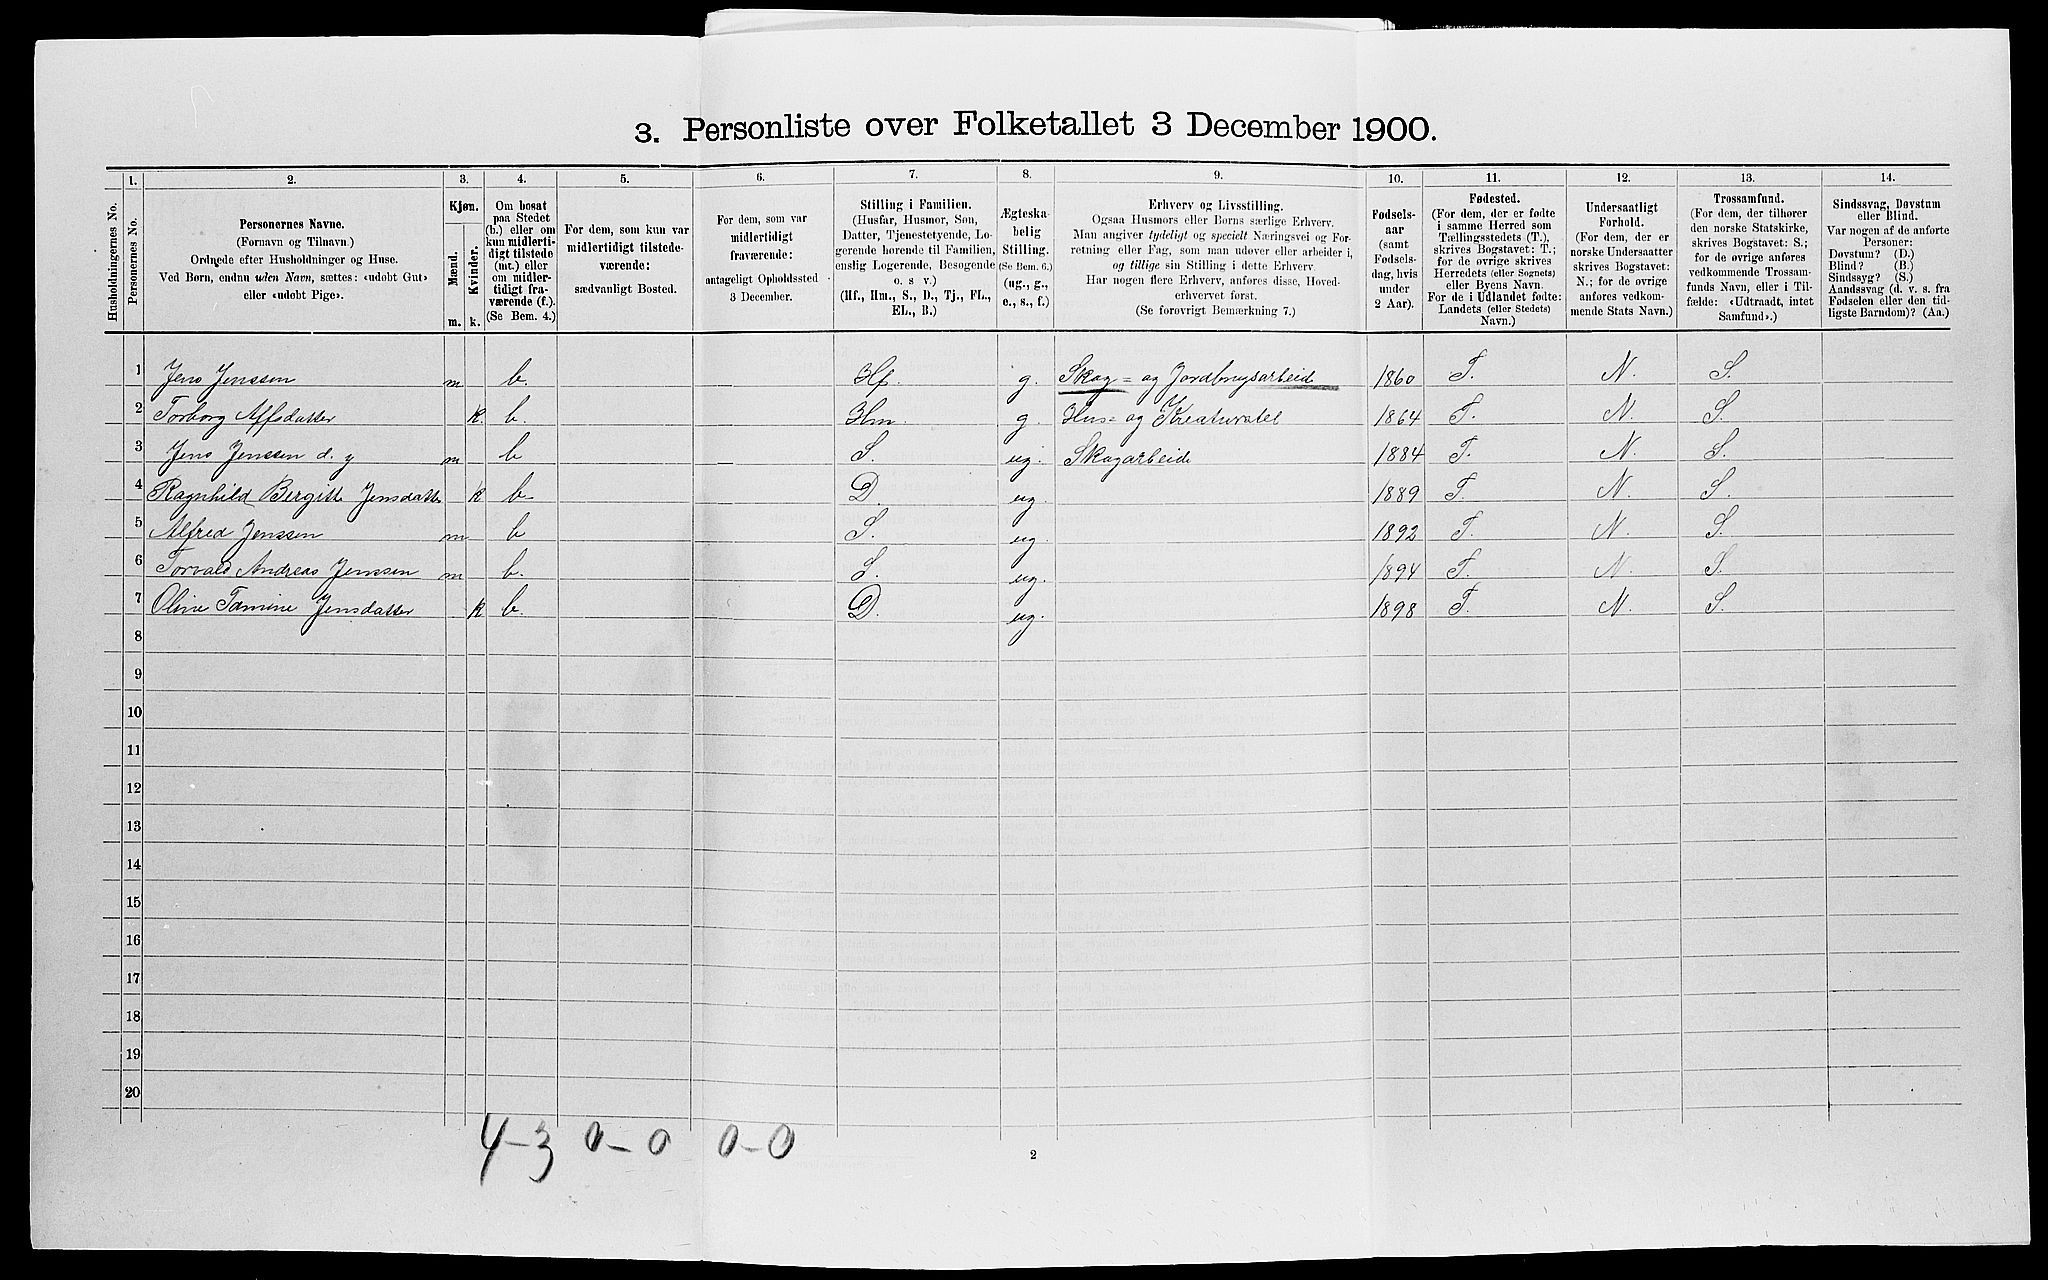 3. Personliste over Folketallet 3 December 1900.
1. 2. 3. 4. 5. 6. 7. 8. 9. 10. 11. 12. 13. 14.
Husholdningernes No.
Personernes No.
Personernes Navne.
(Fornavn og Tilnavn.)
Ordnede efter Husholdninger og Huse.
Ved Børn, endnu uden Navn, sættes: «udøbt Gut»
eller «udøbt Pige».
Kjøn.
Mænd.
Kvinder.
m. k.
Om bosat
paa Stedet
(b.) eller om
kun midlerti-
digt tilstede
(mt.) eller
om midler-
tidigt fra-
værende (f.).
(Se Bem. 4.)
For dem, som kun var
midlertidigt tilstede-
værende:
sædvanligt Bosted.
For dem, som var
midlertidigt
fraværende:
antageligt Opholdssted
3 December.
Stilling i Familien.
(Husfar, Husmor, Søn,
Datter, Tjenestetyende, Lo-
gerende hørende til Familien,
enslig Logerende, Besøgende
o. s v.)
(Hf., Hm., S., D., Tj., FL.,
EL., B.)
Ægteska-
belig
Stilling.
(Se Bem. 6.)
(ug., g.,
e., s., f.)
Erhverv og Livsstilling.
Ogsaa Husmors eller Børns særlige Erhverv.
Man angiver tydeligt og specielt Næringsvei og For-
retning eller Fag, som man udøver eller arbeider i,
og tillige sin Stilling i dette Erhverv.
Har nogen flere Erhverv, anføres disse, Hoved-
erhvervet først.
(Se forøvrigt Bemærkning 7.)
Fødsels-
aar
(samt
Fødsels-
dag, hvis
under
2 Aar).
Fødested.
(For dem, der er fødte
i samme Herred som
Tællingsstedets (T.),
skrives Bogstavet: T.;
for de øvrige skrives
Herredets (eller Sognets)
eller Byens Navn.
For de i Udlandet fødte:
Landets (eller Stedets)
Navn.)
Undersaatligt
Forhold.
(For dem, der er
norske Undersaatter
skrives Bogstavet:
N.; for de øvrige
anføres vedkom-
mende Stats Navn.)
Trossamfund.
(For dem, der tilhører
den norske Statskirke,
skrives Bogstavet: S.;
for de øvrige anføres
vedkommende Trossam-
funds Navn, eller i Til-
fælde: «Udtraadt, intet
Samfund».)
Sindssvag, Døvstum
eller Blind.
Var nogen af de anførte
Personer:
Døvstum? (D.)
Blind? (B.)
Sindssyg? (S.)
Aandssvag (d. v. s. fra
Fødselen eller den tid-
ligste Barndom)? (Aa.)
1 Jens Jenssen m b. Hf. g. Skog- og Jordbrugsarbeid 1860 T. N. S.
2 Torborg Alfsdatter k. b. Hm. g. Hus- og Kreaturstel 1864 T. N. S.
3 Jens Jenssen d. y m b S. ug. Skogarbeide 1884 T. N. S.
4 Ragnhild Bergitte Jensdatte k b. D. ug. 1889 T. N. S.
5 Alfred Jenssen m b S. ug. 1892 T. N. S.
6 Torvald Andreas Jenssen m b. S. ug. 1894 T. N. S.
7 Oline Tomine Jensdatter k b. D. ug. 1898 T. N. S.
8
9
10
11
12
13
14
15
16
17
18
19
20
4-3 0-0 0-0
2